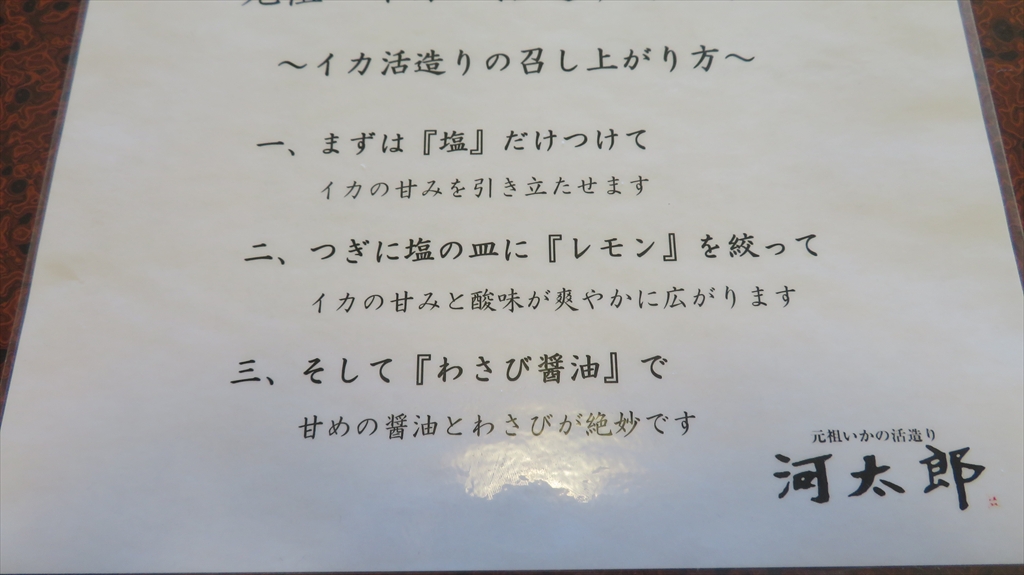 ～イカ活造りの召し上がり方～
一、まずは『塩』だけつけて
イカの甘みを引き立たせます
二、つぎに塩の皿に『レモン』を絞って
イカの甘みと酸味が爽やかに広がります
三、そして『わさび醤油』で
甘めの醤油とわさびが絶妙です
元祖いかの活造り
河太郎